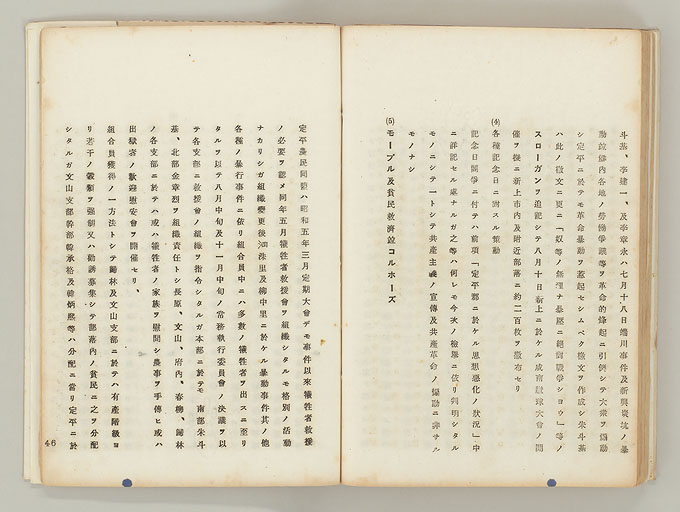 斗基、李建一、及李章永ハ七月十八日端川事件及新興炭坑ノ暴
動並鮮内各地ノ労働争議等ヲ革命的蜂起ニ引例シテ大衆ヲ煽動
シ定平ニ於テモ革命暴動ヲ蓋起セシムベク檄文ヲ作成シ朱斗基
ハ此ノ檄文ニ更ニ「奴等ノ無理ナ暴圧ニ絶対戦争シヨウ」等ノ
スローガンヲ追記シテ八月十日新上ニ於ケル咸南蹴球大會ノ開
催ヲ機ニ新上市内及附近部落ニ約二百枚ヲ撒布セリ
(4) 各種記念日ニ対スル策動
記念日闘争ニ付テハ前項「定平郡ニ於ケル思想悪化ノ状況」中
ニ詳記セル處ナルガ之等ハ何レモ今次ノ檢擧ニ依リ判明シタル
モノニシテ一トシテ共産主義ノ宣傳及共産革命ノ煽動ニ非サル
モノナシ
(5) モープル及貧民救濟並コルホーズ
定平農民同盟ハ昭和五年三月定期大會デモ事件以來犠牲者救援
ノ必要ヲ認メ同年五月犠牲者救援會ヲ組織シタルモ格別ノ活動
ナカリシガ組織變更後洳洙里及柳中里ニ於ケル暴動事件其ノ他
各種ノ暴行事件ニ依リ組合員中ニハ多數ノ犠牲者ヲ出スニ至リ
タルヲ以テ八月中旬及十一月中旬ノ常務執行委員會ノ決議ヲ以
テ各支部ニ救援會ノ組織ヲ指令シタルガ本部ニ於テモ南部朱斗
基、北部金章烈ヲ組織責任トシ長原、文山、府内、春柳、歸林
ノ各支部ニ於テハ或ハ犠牲者ノ家族ヲ慰問シ農事ヲ手傳ヒ或ハ
出獄者ノ歓迎慰安會ヲ開催セリ、
組合員獲得ノ一方法トシテ歸林及文山支部ニ於テハ有産階級ヨ
リ若干ノ穀類ヲ强制又ハ勧誘募集シテ部落内ノ貧民ニ之ヲ分配
シタルガ文山支部幹部韓承格及韓炳熙等ハ分配ニ當リ定平ニ於
46